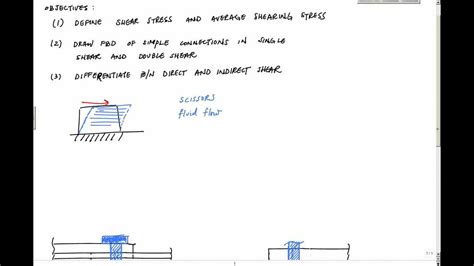 OBJECTIVES :
(1) DEFINE SHEAR STRESS AND AVERAGE SHEARING STRESS
(2) DRAW FBD OF SIMPLE CONNECTIONS IN SINGLE
SHEAR AND DOUBLE SHEAR
(3) DIFFERENTIATE B/N DIRECT AND INDIRECT SHEAR
SCISSORS
fluid flow